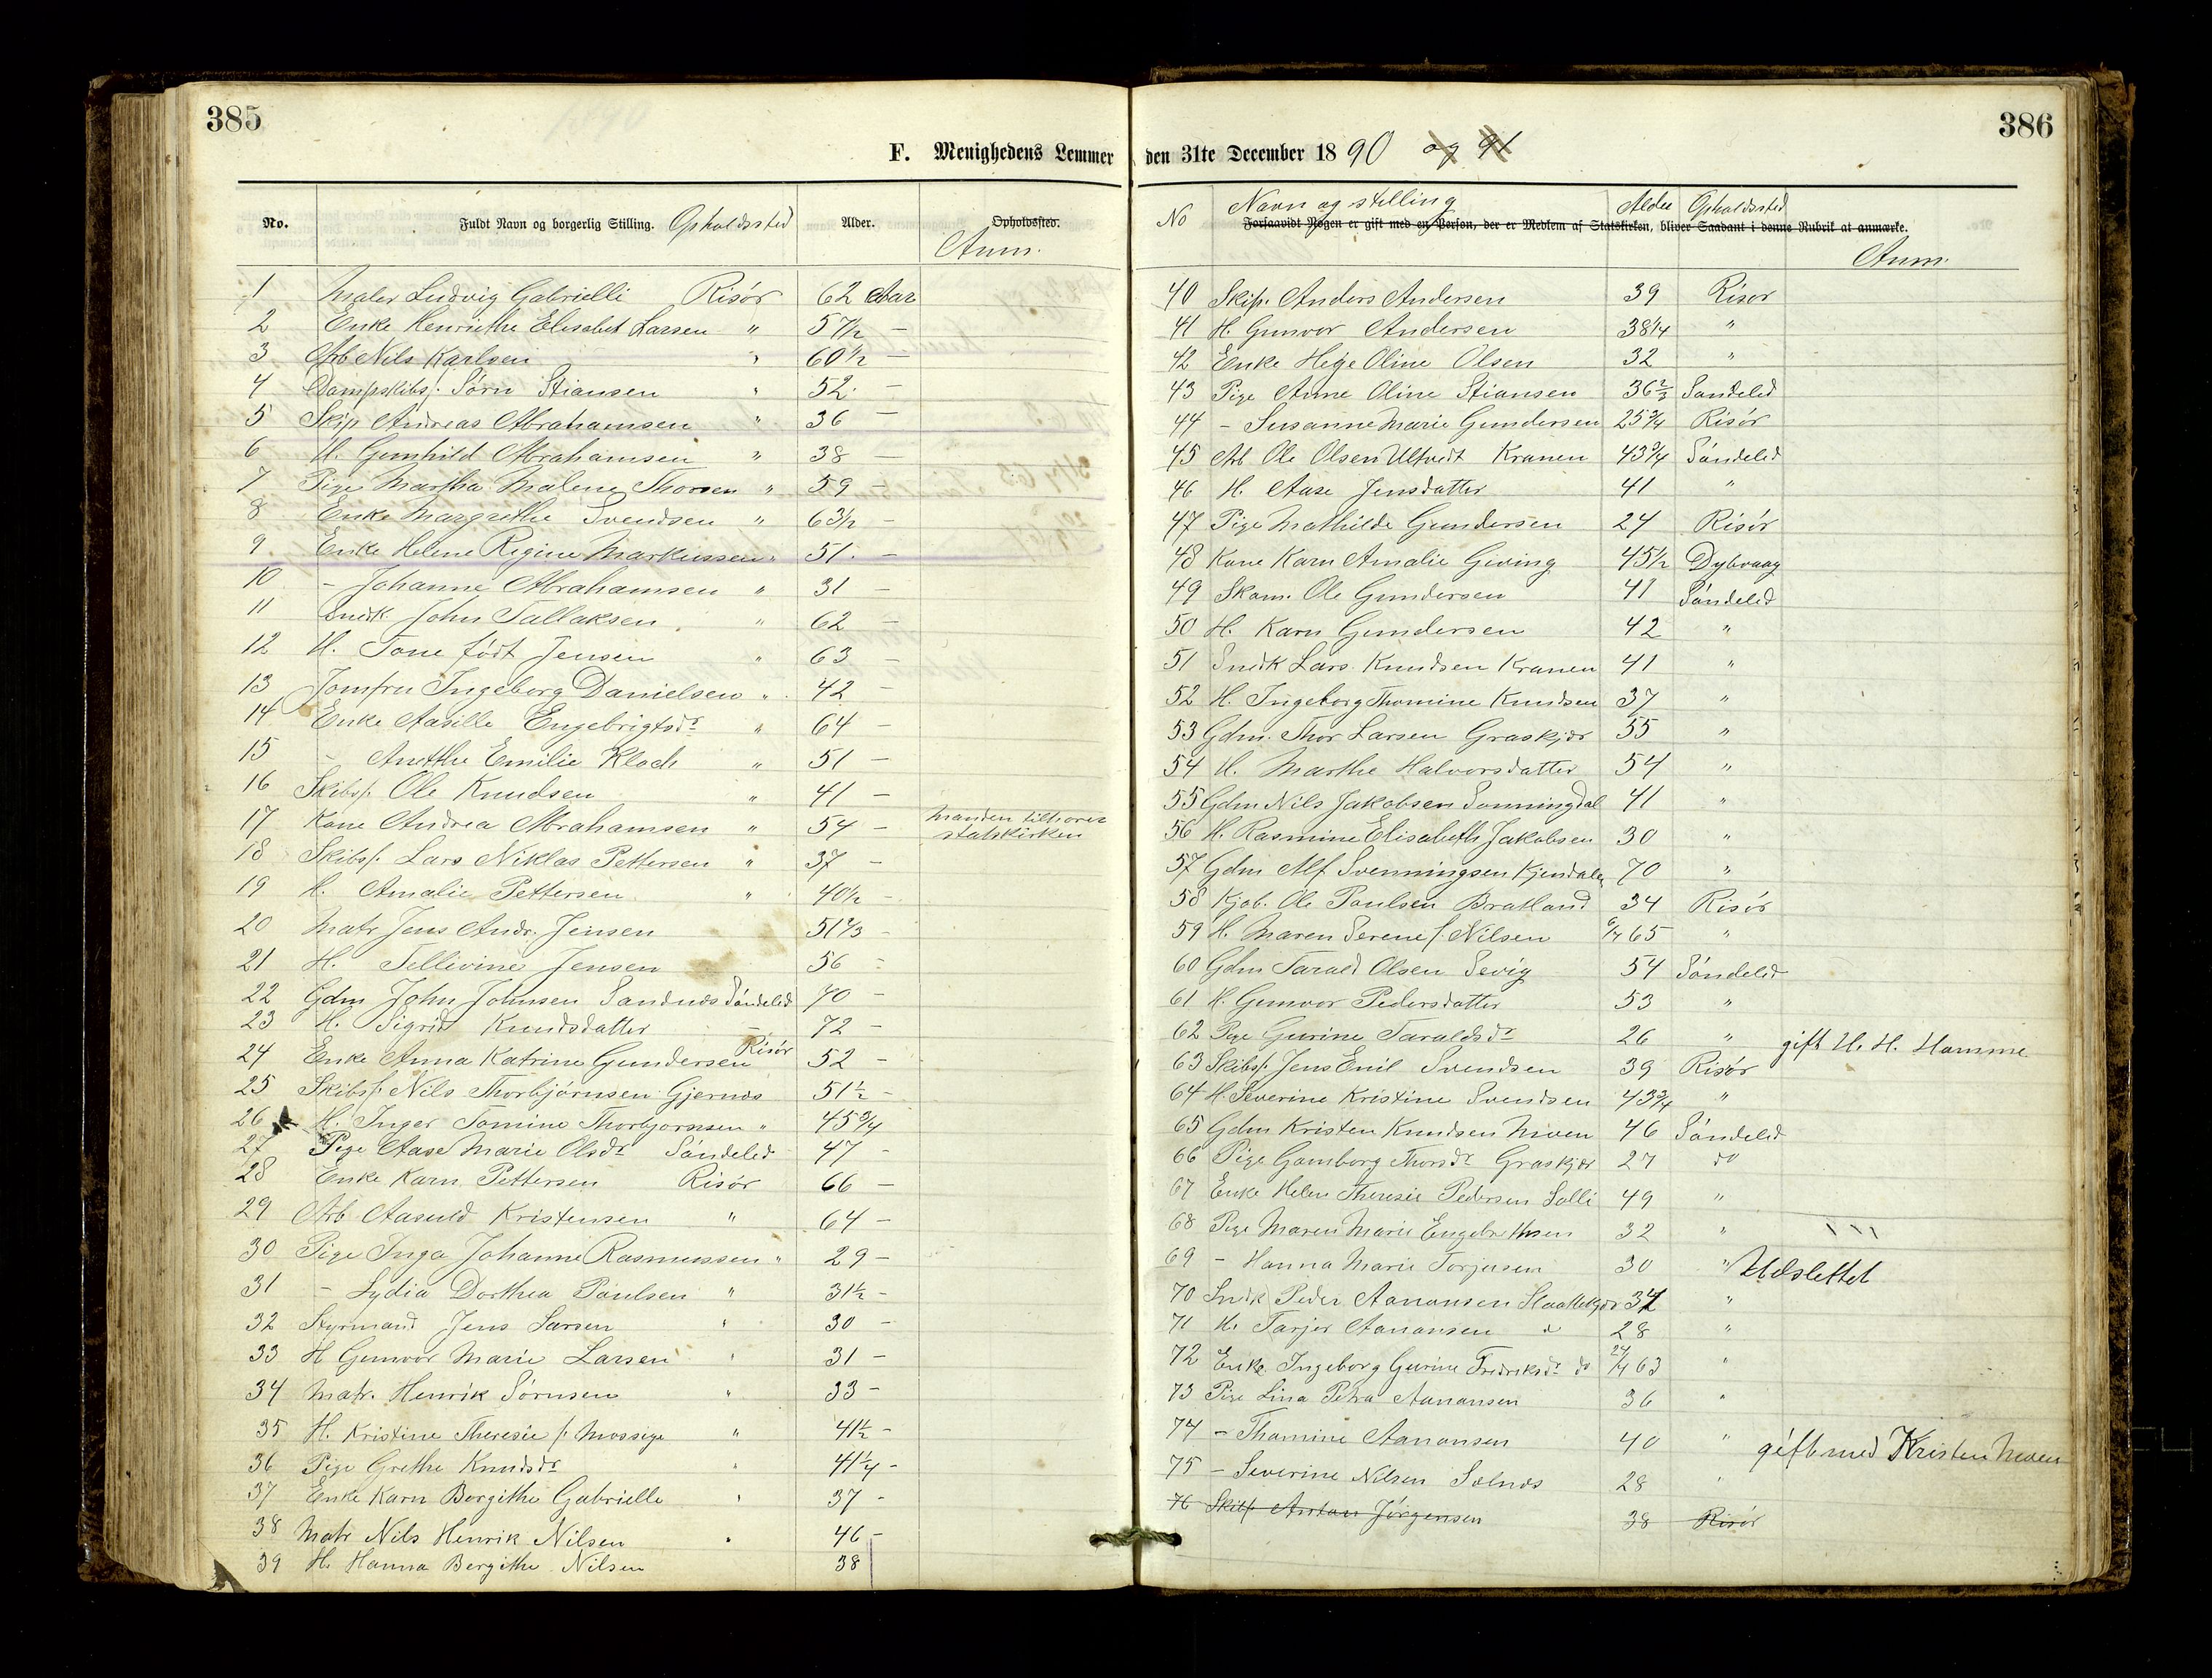 385
F. Menighedens Lemmer
No. Fuldt Navn og borgerlig Stilling. Opholdssted Alder. Opholdssted.
Anm.
1 Maler Ludvig Gabrielli Risör 62 Aar
2 Enke Henriethe Elisabet Larsen " 57½ –
3 Arb Nils Karlsen " 60½ –
4 Dampskibsf. Sörn Stiansen " 52. –
5 Skip Andreas Abrahamsen " 36 –
6 H. Gunhild Abrahamsen " 38 –
7 Pige Martha Malene Thorsen " 59 –
8 Enke Margrethe Svendsen " 63½ –
9 Enke Helene Regine Markussen " 51. –
10 – Johanne Abrahamsen " 31 –
11 Snedk. John Tallaksen " 62 –
12 H. Tone födt Jensen " 63 –
13 Jomfru Ingeborg Danielsen " 42 –
14 Enke Aasille Engebrigtsdr " 64 –
15 – Anetthe Emilie Kloch " 51 –
16 Skibsf. Ole Knudsen " 41 –
17 Kone Andrea Abrahamsen " 54 – Manden tilhorer
statskirken
18 Skibsf. Lars Niklas Pettersen " 37 –
19 H. Amalie Pettersen " 40½ –
20 Matr Jens Andr. Jensen 51⅔ –
21 H. Tellivine Jensen 56 –
22 Gdm John Johnsen Sandnæs Söndeled 70 –
23 H. Sigrid Knudsdatter – 72 –
24 Enke Anna Katrine Gundersen Risör 52 –
25 Skibsf. Nils Thorbjörnsen Gjernæs 51½ –
26 H. Inger Tomine Thorbjornsen " 45¾
27 Pige Aase Marie Olsdr Söndeled 47 –
28 Enke Karn Pettersen Risör 66 –
29 Arb Aasuld Kristensen " 64 –
30 Pige Inga Johanne Rasmussen " 29 –
31 – Lydia Dorthea Paulsen " 31½ –
32 Styrmand Jens Larsen " 30 –
33 H Gunvor Marie Larsen " 31 –
34 Matr. Henrik Sörnsen " 33 –
35 H. Kristine Theresie f. Mossige " 41½ –
36 Pige Grethe Knudsdr " 41¼ –
37 Enke Karn Borgithe Gabrielle " 37 –
38 Matr Nils Henrik Nilsen " 46 –
39 H. Hanna Bergithe Nilsen 38
386
den 31te December 1890 og 91
No Navn og stilling Alder Opholdssted
Forsaavidt Nogen er gift med en Person, der er Medlem af Statskirken, bliver Saadant i denne Rubrik at anmærke.
Anm.
40 Skip. Anders Andersen 39 Risör
41 H. Gunvor Andersen 38¼ "
42 Enke Hege Oline Olsen 32 "
43 Pige Anne Oline Stiansen 36⅔ Sandeled
44 – Susanne Marie Gundersen 25¾ Risör
45 Arb Ole Olsen Ultvedt Kranen 43¾ Söndeled
46 H. Aase Jensdatter 41 "
47 Pige Mathilde Gundersen 24 Risör
48 Kone Karn Amalie Giving 45½ Dybvaag
49 Skom. Ole Gundersen 41 Söndeled
50 H. Karn Gundersen 42 "
51 Snedk Lars Knudsen Kranen 41 "
52 H. Ingeborg Thomine Knudsen 37 "
53 Gdm. Thor Larsen Graskjær 55 "
54 H. Marthe Halvorsdatter 54 "
55 Gdm Nils Jakobsen Sonningdal 41 "
56 H. Rasmine Elisabeth Jakobsen 30 "
57 Gdm Alf Svenningsen Kjendalen 70 "
58 Kjöb. Ole Paulsen Bratland 34 Risör
59 H. Maren Serene f. Nilsen 6/7 65 "
60 Gdm Tarald Olsen Sevig 54 Söndeled
61 H. Gunvor Pedersdatter 53 "
62 Pige Gurine Taraldsdr 26 " gift H. H. Hamme
63 Skibsf. Jens Emil Svendsen 39 Risör
64 H. Severine Kristine Svendsen 43¾ "
65 Gdm Kristen Knudsen Moen 46 Söndeled
66 Pige Gamborg Thorsdr Graskjær 27 do
67 Enke Helen Theresie Pedersen Lolli 49 "
68 Pige Maren Marie Engebrethsen 32 "
69 – Hanna Marie Torjusen 30 " Udslettet
70 Snedk Peder Aanonsen Slaattekjær 34 "
71 H. Tarjer Aanonsen do 28 "
72 Enke Ingeborg Gurine Fredriksdr do 24/4 63 "
73 Pige Lina Petra Aanonsen 36 "
74 – Thomine Aanonsen 40 " gift med Kristen Moen
75 – Severine Nilsen Solnæs 28 "
76 Skibsf. Anton Jörgensen 38 Risör